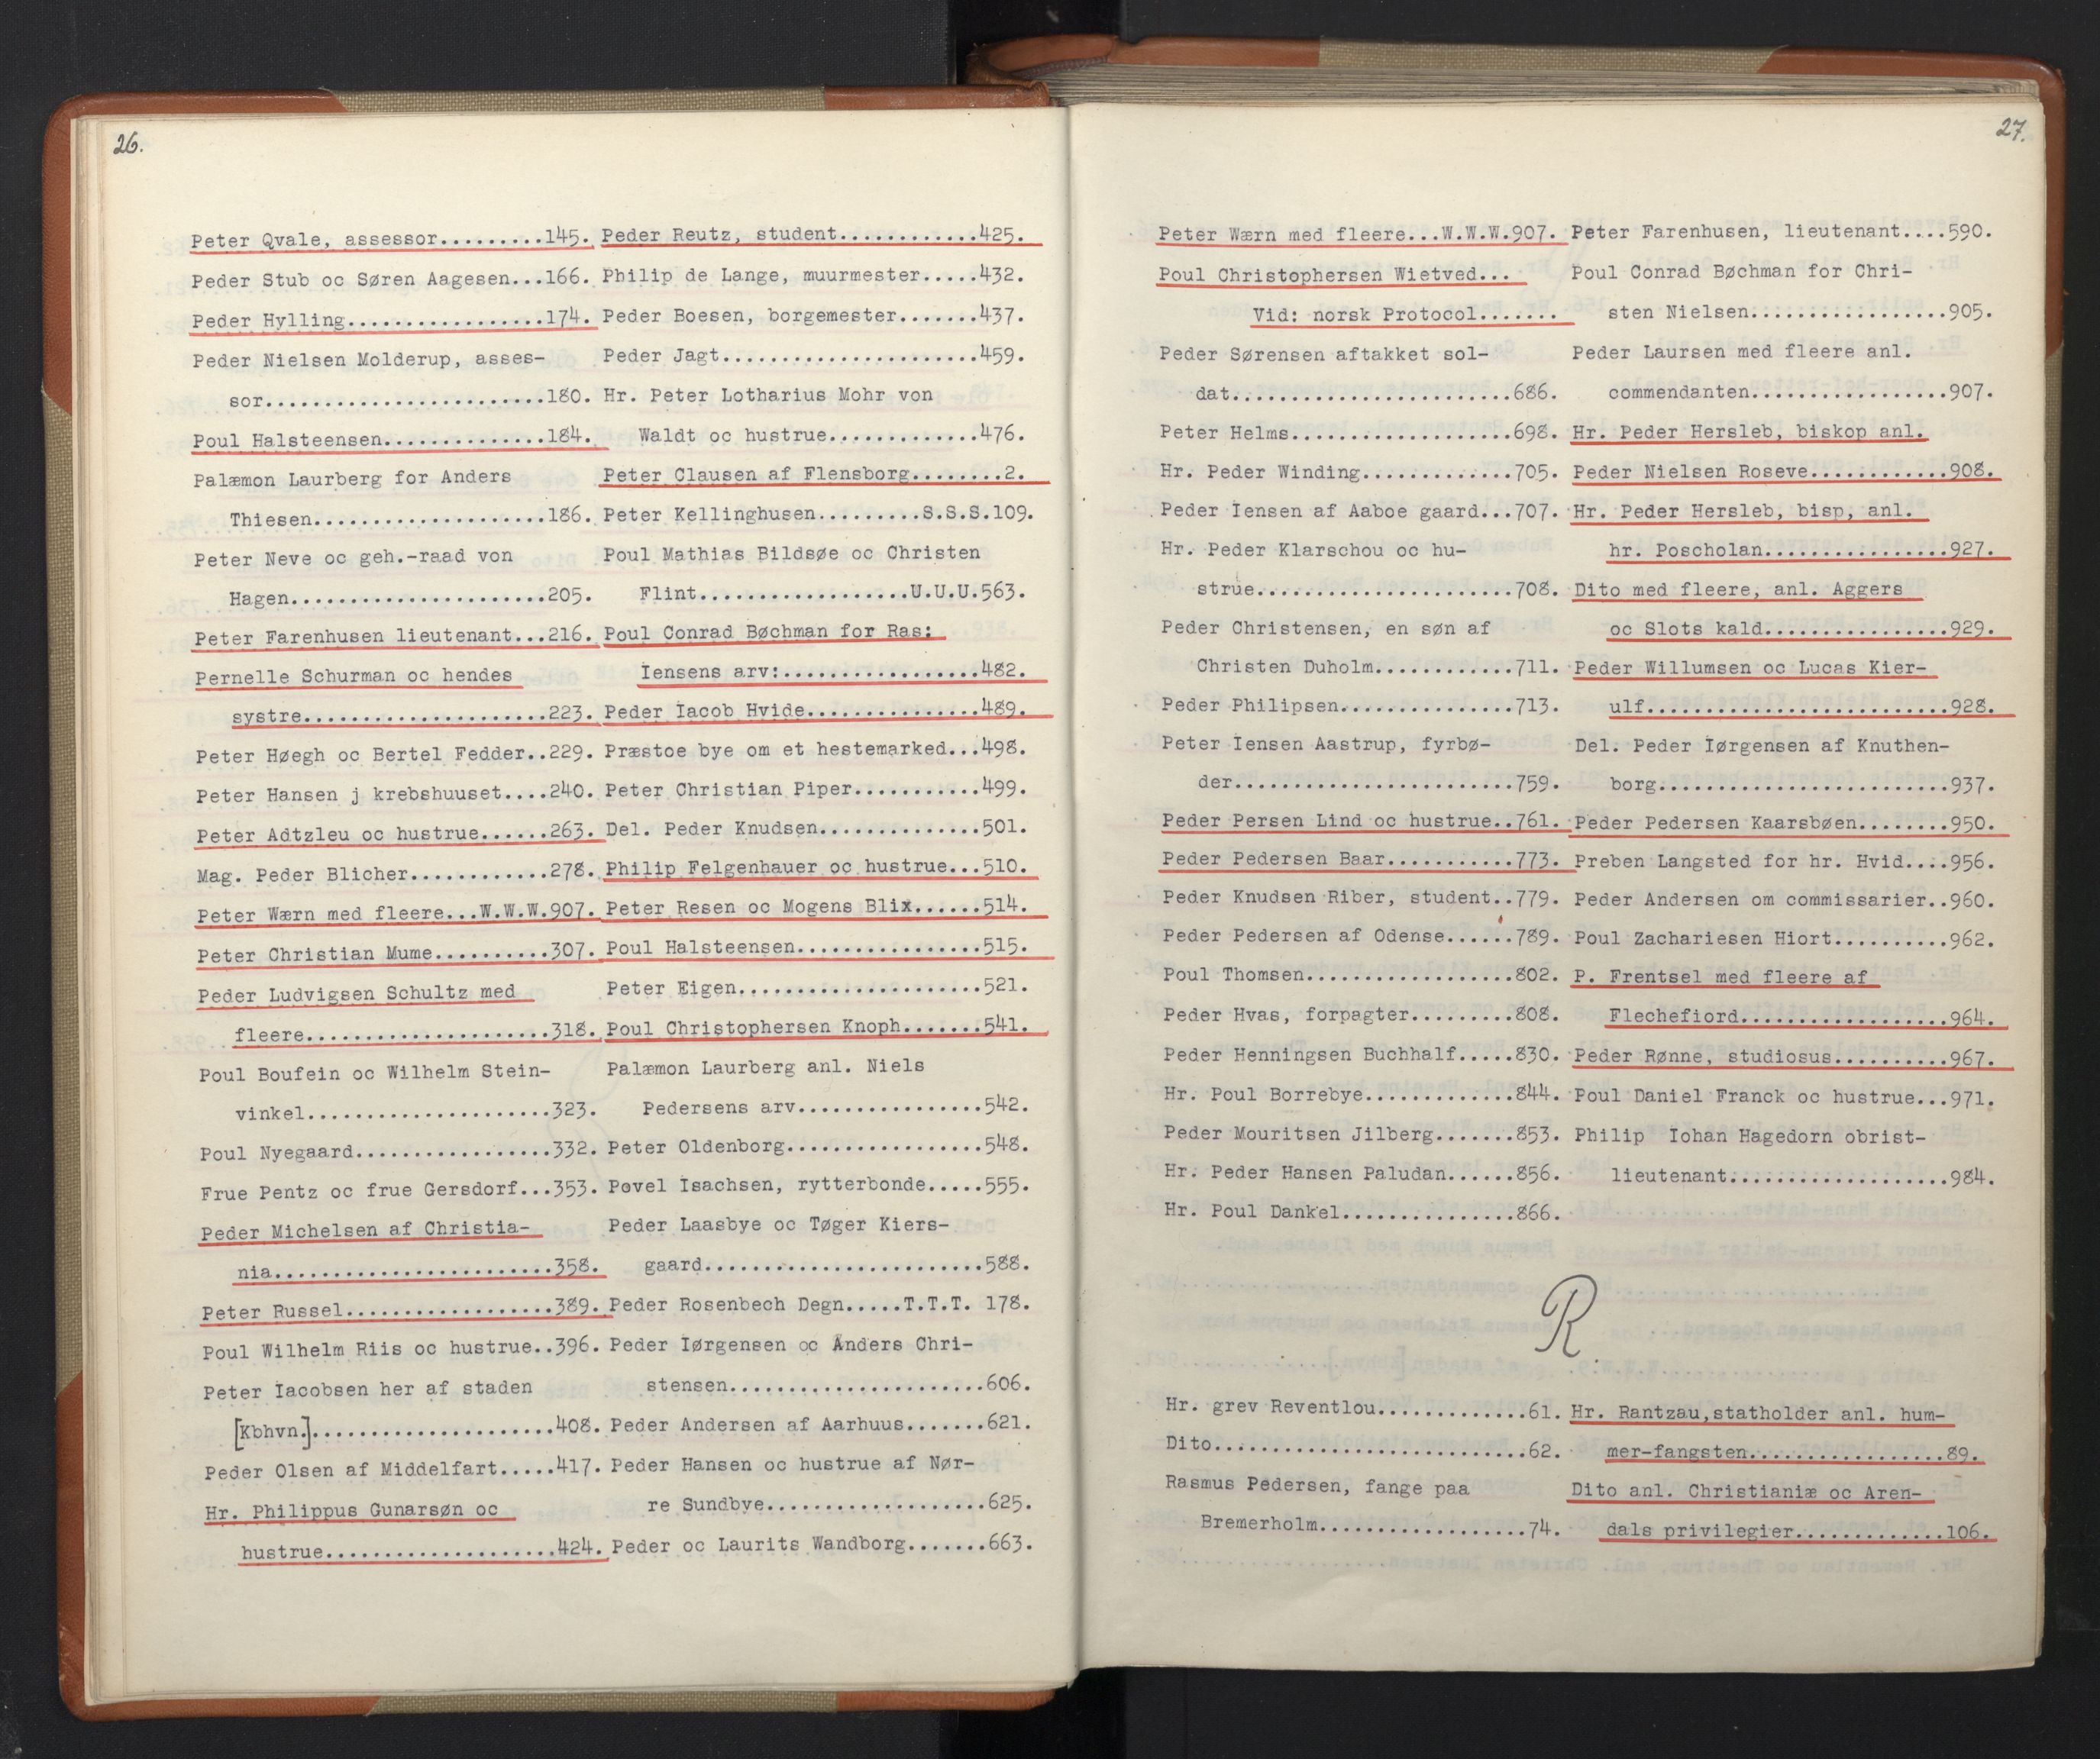 26.
Peter Qvale, assessor.........145.
Peder Stub oc Søren Aagesen...166.
Peder Hylling.................174.
Peder Nielsen Molderup, asses-
sor........................180.
Poul Halsteensen..............184.
Palæmon Laurberg for Anders
Thiesen....................186.
Peter Neve oc geh.-raad von
Hagen......................205.
Peter Farenhusen lieutenant...216.
Pernelle Schurman oc hendes
systre.....................223.
Peter Høegh oc Bertel Fedder..229.
Peter Hansen j krebshuuset....240.
Peter Adtzleu oc hustrue......263.
Mag. Peder Blicher............278.
Peter Wærn med fleere...W.W.W.907.
Peter Christian Mume..........307.
Peder Ludvigsen Schultz med
fleere.....................318.
Poul Boufein oc Wilhelm Stein-
vinkel.....................323.
Poul Nyegaard.................332.
Frue Pentz oc frue Gersdorf...353.
Peder Michelsen af Christia-
nia........................358.
Peter Russel..................389.
Poul Wilhelm Riis oc hustrue..396.
Peter Iacobsen her af staden
[Kbhvn.].....................408.
Peder Olsen af Middelfart.....417.
Hr. Philippus Gunarsøn oc
hustrue....................424.
Peder Reutz, student............425.
Philip de Lange, muurmester.....432.
Peder Boesen, borgemester.......437.
Peder Jagt......................459.
Hr. Peter Lotharius Mohr von
Waldt oc hustrue.............476.
Peter Clausen af Flensborg........2.
Peter Kellinghusen.........S.S.S.109.
Poul Mathias Bildsøe oc Christen
Flint..................U.U.U.563.
Poul Conrad Bøchman for Ras:
Iensens arv:.................482.
Peder Iacob Hvide...............489.
Præstoe bye om et hestemarked...498.
Peter Christian Piper...........499.
Del. Peder Knudsen..............501.
Philip Felgenhauer oc hustrue...510.
Peter Resen oc Mogens Blix......514.
Poul Halsteensen................515.
Peter Eigen.....................521.
Poul Christophersen Knoph.......541.
Palæmon Laurberg anl. Niels
Pedersens arv................542.
Peter Oldenborg.................548.
Povel Isachsen, rytterbonde.....555.
Peder Laasbye oc Tøger Kiers-
gaard........................588.
Peder Rosenbech Degn.....T.T.T. 178.
Peder Iørgensen oc Anders Chri-
stensen......................606.
Peder Andersen af Aarhuus.......621.
Peder Hansen oc hustrue af Nør-
re Sundbye...................625.
Peder oc Laurits Wandborg.......663.
27.
Peter Wærn med fleere...W.W.W.907.
Poul Christophersen Wietved...
Vid: norsk Protocol.......
Peder Sørensen aftakket sol-
dat........................686.
Peter Helms...................698.
Hr. Peder Winding.............705.
Peder Iensen af Aaboe gaard...707.
Hr. Peder Klarschou oc hu-
strue......................708.
Peder Christensen, en søn af
Christen Duholm............711.
Peder Philipsen...............713.
Peter Iensen Aastrup, fyrbø-
der........................759.
Peder Persen Lind oc hustrue..761.
Peder Pedersen Baar...........773.
Peder Knudsen Riber, student..779.
Peder Pedersen af Odense......789.
Poul Thomsen..................802.
Peder Hvas, forpagter.........808.
Peder Henningsen Buchhalf.....830.
Hr. Poul Borrebye.............844.
Peder Mouritsen Jilberg.......853.
Hr. Peder Hansen Paludan......856.
Hr. Poul Dankel...............866.
Peter Farenhusen, lieutenant....590.
Poul Conrad Bøchman for Chri-
sten Nielsen.................905.
Peder Laursen med fleere anl.
commendanten.................907.
Hr. Peder Hersleb, biskop anl.
Peder Nielsen Roseve............908.
Hr. Peder Hersleb, bisp, anl.
hr. Poscholan................927.
Dito med fleere, anl. Aggers
oc Slots kald................929.
Peder Willumsen oc Lucas Kier-
ulf..........................928.
Del. Peder Iørgensen af Knuthen-
borg.........................937.
Peder Pedersen Kaarsbøen........950.
Preben Langsted for hr. Hvid....956.
Peder Andersen om commissarier..960.
Poul Zachariesen Hiort..........962.
P. Frentsel med fleere af
Flechefiord..................964.
Peder Rønne, studiosus..........967.
Poul Daniel Franck oc hustrue...971.
Philip Iohan Hagedorn obrist-
lieutenant...................984.
R.
Hr. grev Reventlou.............61.
Dito...........................62.
Rasmus Pedersen, fange paa
Bremerholm..................74.
Hr. Rantzau,statholder anl. hum-
mer-fangsten.................89.
Dito anl. Christianiæ oc Aren-
dals privilegier.............106.